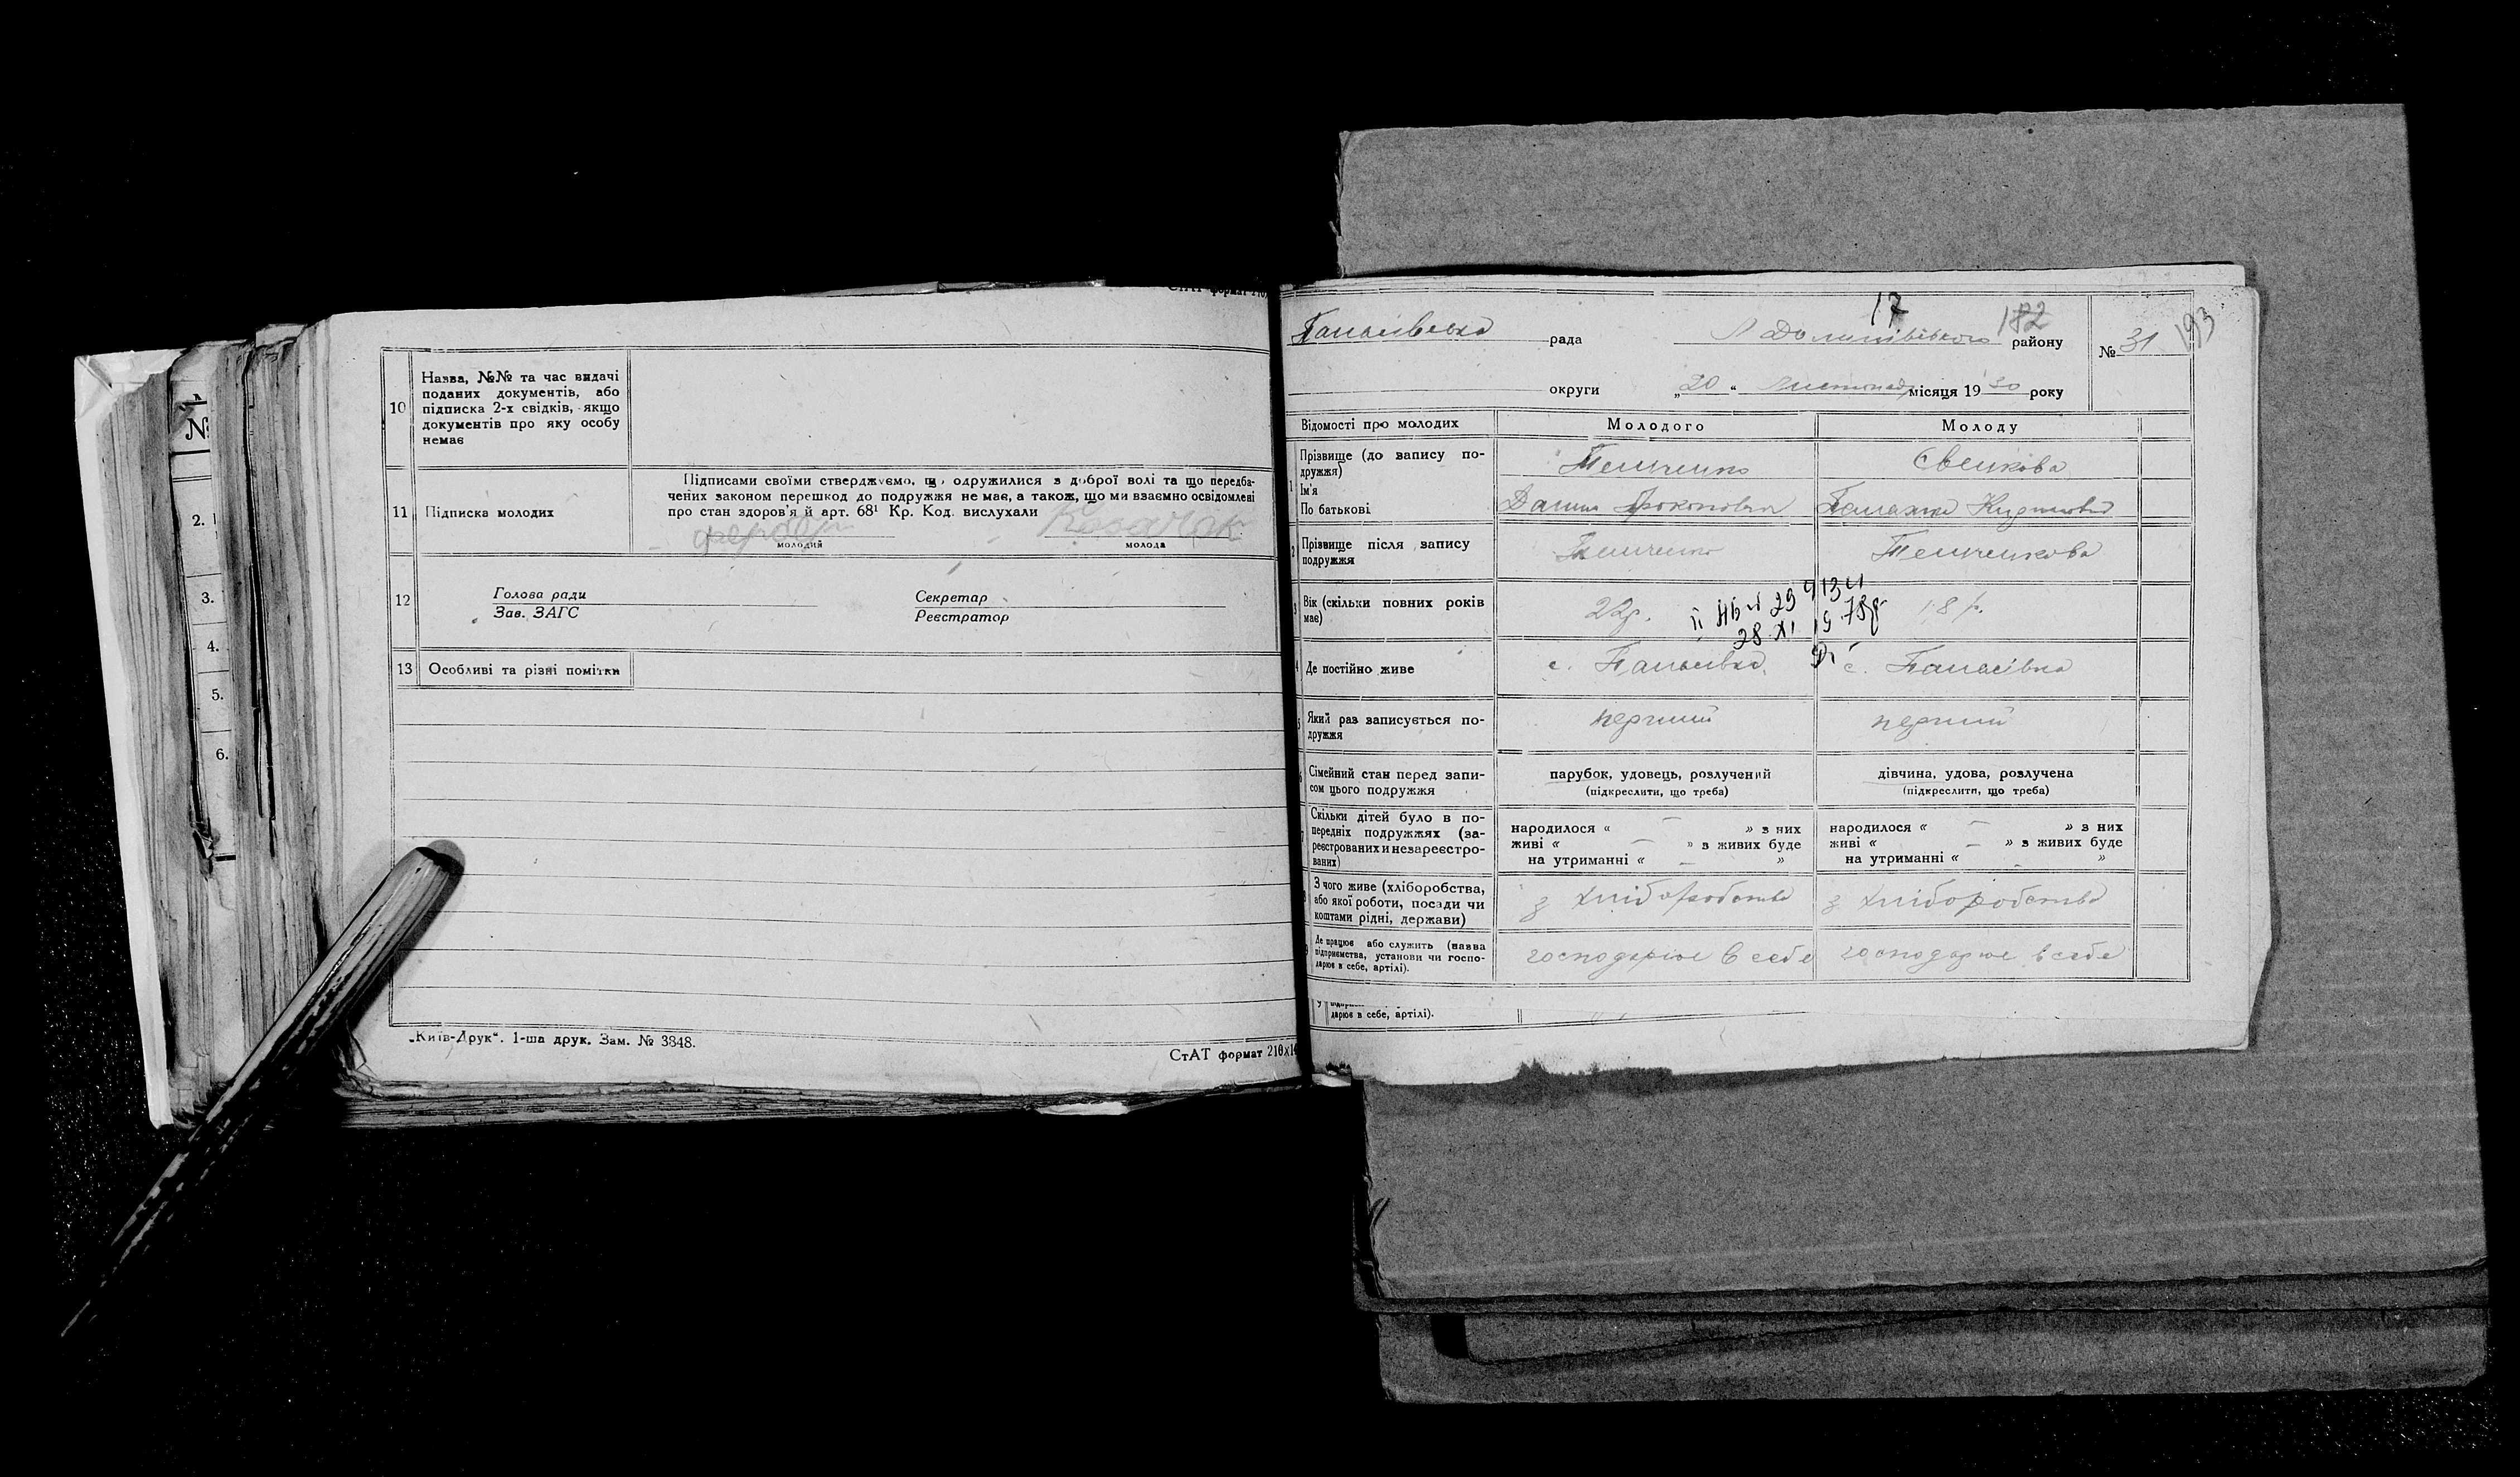 10
Назва, №№ та час видачі
поданих документів, або
підписка 2-х свідків, якщо
документів про яку особу
немає
11 Підписка молодих
Підписами своїми стверджуємо, що одружилися з доброї волі та що передба-
чених законом перешкод до подружжя не має, а також, що ми взаємно освідомлені
про стан здоров'я й арт. 68¹ Кр. Код. вислухали
молодий
Козачок
молода
12
Голова ради
Зав. ЗАГС
Секретар
Реєстратор
13 Особливі та різні помітки
„Київ-Друк“. 1-ша друк. Зам. № 3848.
СтАТ формат 210х14
№
2.
3.
4.
5.
6.
17
182
193
Панасівська рада району
№ 31
округи „20“ Листопад місяця 1930 року
Відомості про молодих
Молодого
Молоду
1
Прізвище (до запису по-
дружжя)
Ім'я
По батькові
Темченко
Євенкова
Данило Прокопович
2
Прізвище після запису
подружжя
Темченко
Темченкова
3
Вік (скільки повних років
має)
22р.
18 р.
28 XI
4
Де постійно живе
с. Панасівка
с. Панасівка
5
Який раз записується по-
дружжя
перший
перший
6
Сімейний стан перед запи-
сом цього подружжя
парубок, удовець, розлучений
(підкреслити, що треба)
дівчина, удова, розлучена
(підкреслити, що треба)
7
Скільки дітей було в по-
передніх подружжях (за-
реєстрованих и незареєстро-
ваних)
народилося « — » з них
живі « — » з живих буде
на утриманні « — »
народилося « — » з них
живі « — » з живих буде
на утриманні « — »
8
З чого живе (хліборобства,
або якої роботи, посади чи
коштами рідні, держави)
з хліборобства
з хліборобства
9
Де працює або служить (назва
підприємства, установи чи госпо-
дарює в себе, артілі).
господарює в себе
господарює в себе
дарює в себе, артілі).